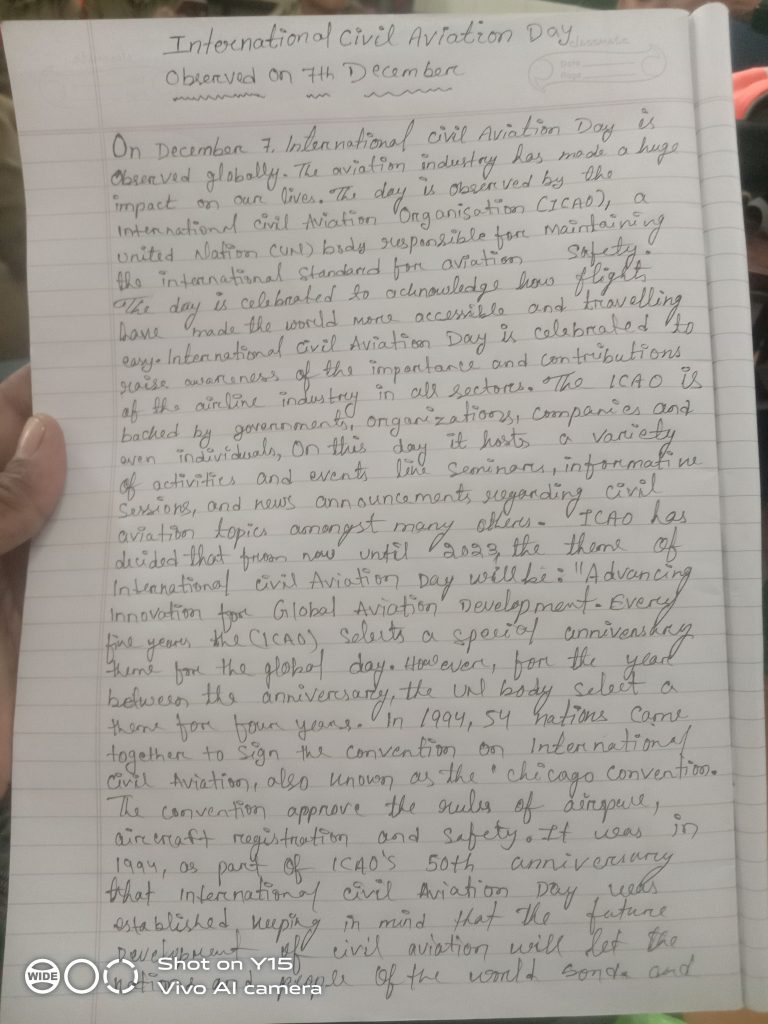 International Civil Aviation Day
Observed on 7th December
classmate
Date
Page
On December 7, International civil Aviation Day is
observed globally. The aviation industry has made a huge
impact on our lives. The day is observed by the
International civil Aviation Organisation (ICAO), a
united Nation (UN) body responsible for maintaining
the international standard for aviation safety.
The day is celebrated to acknowledge how flights
have made the world more accessible and travelling
easy. International civil Aviation Day is celebrated to
raise awareness of the importance and contributions
of the airline industry in all sectors. The ICAO is
backed by governments, organizations, companies and
even individuals, On this day it hosts a variety
of activities and events like seminars, informative
sessions, and news announcements regarding civil
aviation topics amongst many others. ICAO has
decided that from now until 2023, the theme of
International civil Aviation Day will be: "Advancing
Innovation for Global Aviation Development. Every
five years the (ICAO) selects a special anniversary
theme for the global day. However, for the year
between the anniversary, the UN body select a
theme for four years. In 1994, 54 nations came
together to sign the convention on International
Civil Aviation, also known as the "chicago convention.
The convention approve the rules of
aircraft registration and safety. It was in
1994, as part of ICAO'S 50th anniversary
that International civil Aviation Day was
established, keeping in mind that the future
Development of civil aviation will let the
nations and people of the world and
WIDE
Shot on Y15
Vivo AI camera